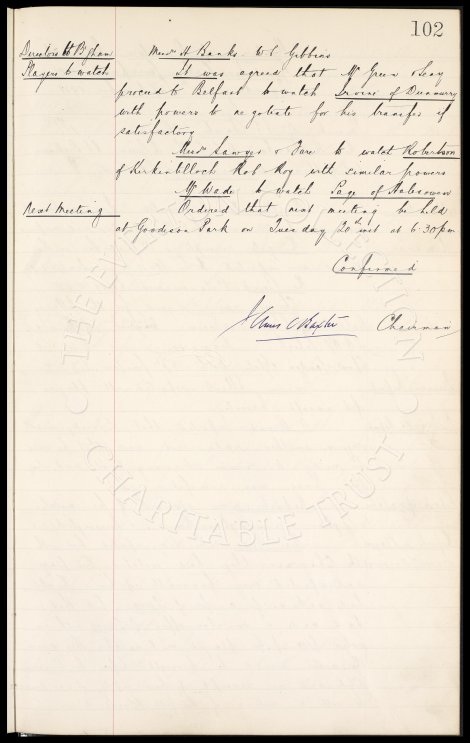 102
Directors to B'ham Messrs H Banks W C Gibbins
Players to watch It was agreed that Mr Green & Leay
proceed to Belfast to watch Irvine of Dunmurry
with powers to negotiate for his transfer if
satisfactory
Messrs Sawyer & to watch Robertson
of Kirkentilloch Rob Roy with similar powers
Mr Wade to watch Page of Halesowen
Next Meeting Ordered that next meeting be held
at Goodison Park on Tuesday 20th inst at 6.30pm
Confirmed
James C Baxter Chairman
THE EVERTON COLLECTION
CHARITABLE TRUST